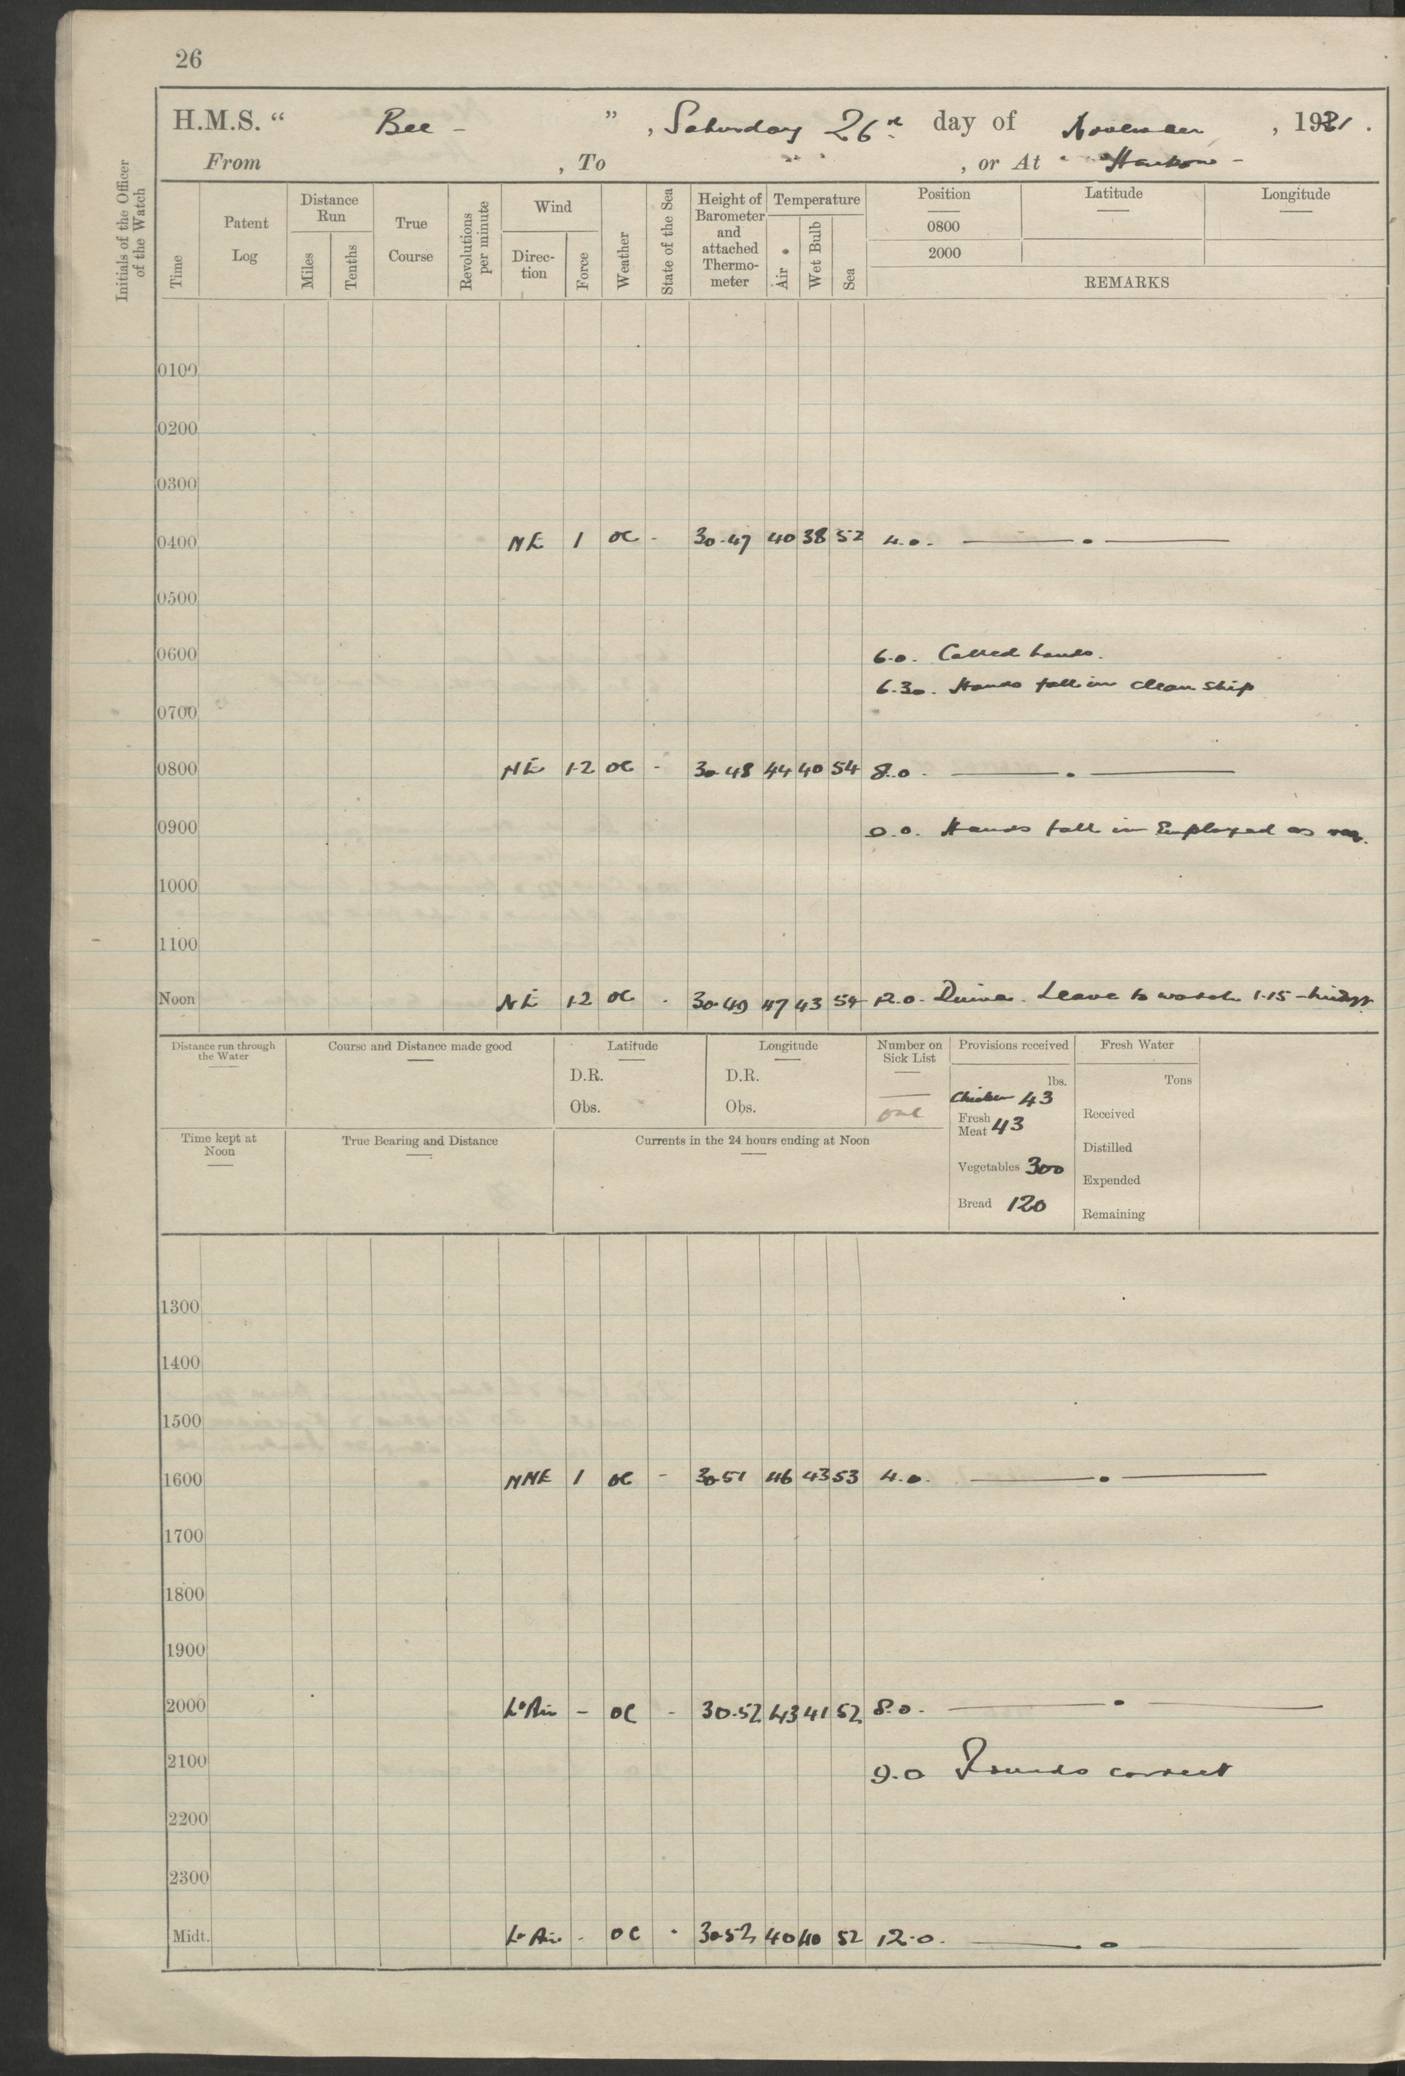 26
H.M.S. “ Bee - ” , Saturday 26th day of November , 1921 .
From , To , or At Hankow -
Initials of the Officer of the Watch
Time
Patent Log
Distance Run
Miles
Tenths
True Course
Revolutions per minute
Wind
Direc-tion
Force
Weather
State of the Sea
Height of Barometer and attached Thermo-meter
Temperature
Air
Wet Bulb
Sea
Position Latitude Longitude
0800
2000
REMARKS
0100
0200
0300
0400 NE 1 OC - 30.47 40 38 52 4.0.
0500
0600 6.0. Called hands.
6.30. Hands fall in clean ship
0700
0800 NE 1-2 OC - 30.48 44 40 54 8.0.
0900 9.0. Hands fall in Employed as
1000
1100
Noon NE 1-2 OC - 30.49 47 43 54 12.0. Leave to watch 1.15 -
Distance run through the Water
Course and Distance made good
Latitude
D.R.
Obs.
Longitude
D.R.
Obs.
Number on Sick List
one
Provisions received
lbs.
Chicken 43
Fresh Meat 43
Vegetables 300
Bread 120
Fresh Water
Tons
Received
Distilled
Expended
Remaining
Time kept at Noon
True Bearing and Distance
Currents in the 24 hours ending at Noon
1300
1400
1500
1600 NNE 1 OC - 30.51 46 43 53 4.0.
1700
1800
1900
2000 Lt Air - OC - 30.52 43 41 52 8.0.
2100 9.0 Rounds correct
2200
2300
Midt. Lt Air - OC - 30.52 40 40 52 12.0.